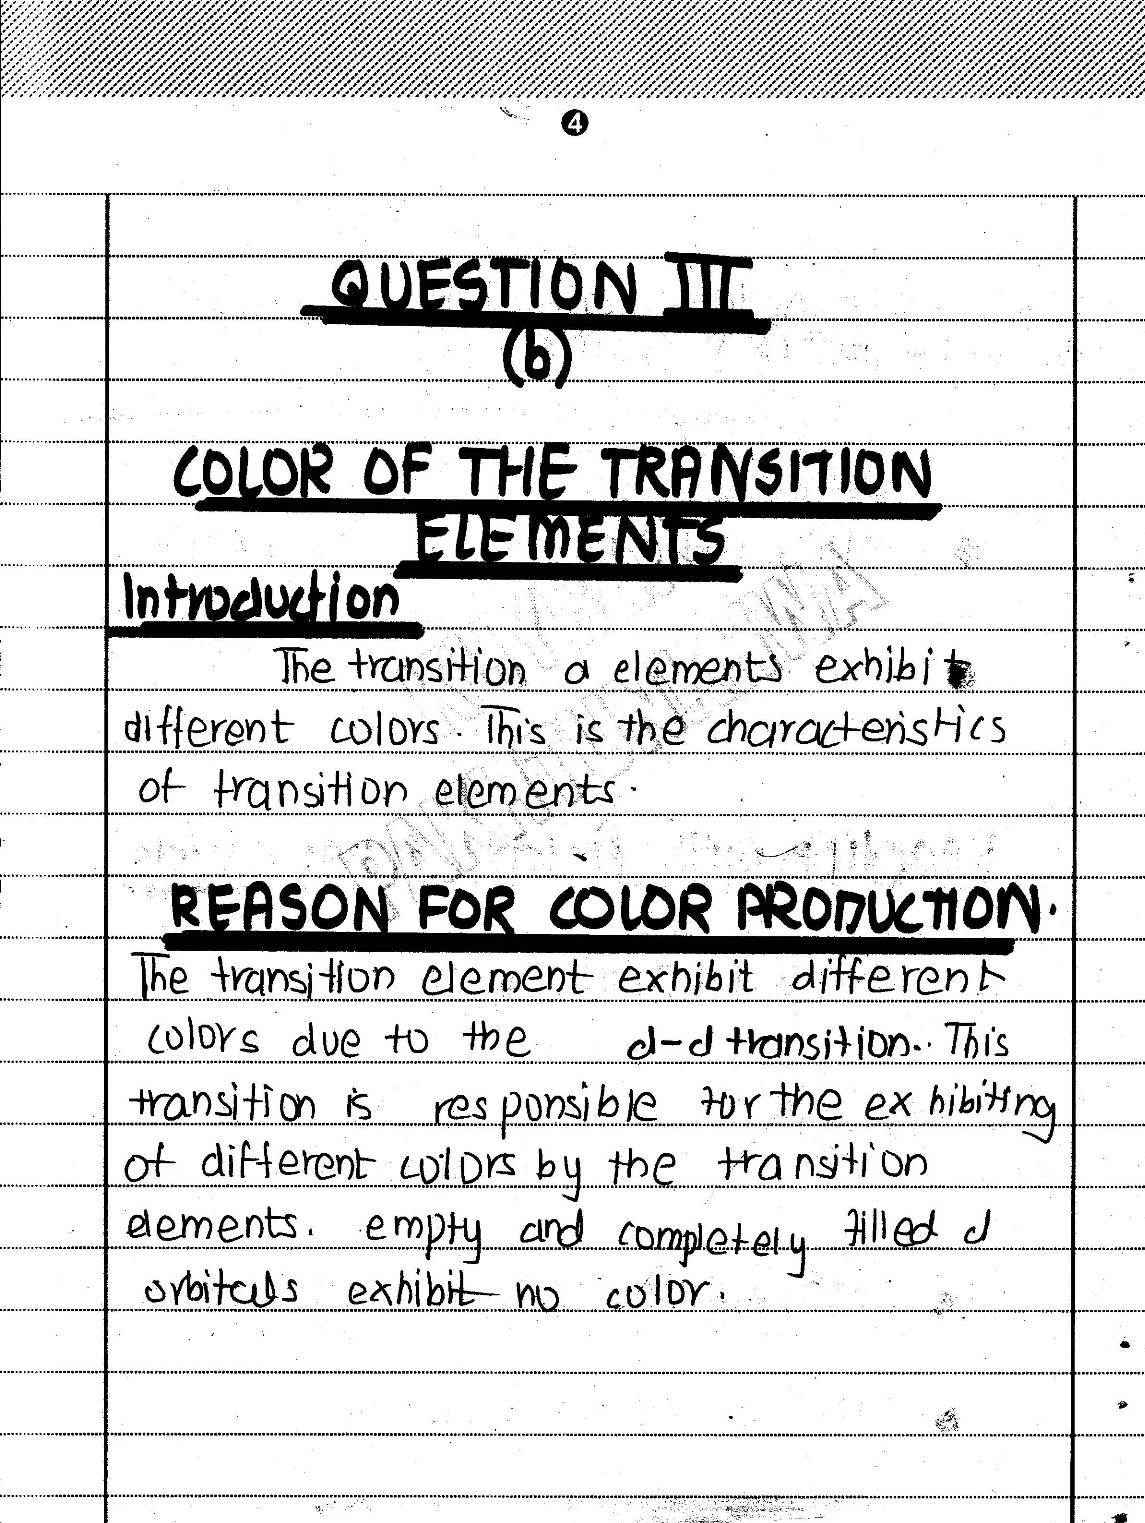 4
QUESTION III
(b)
COLOR OF THE TRANSITION
ELEMENTS
Introduction
The transition a elements exhibit
different colors. This is the characteristics
of transition elements.
REASON FOR COLOR PRODUCTION.
The transition element exhibit different
colors due to the d-d transition.. This
transition is responsible for the exhibiting
of different colors by the transition
elements. empty and completely filled d
orbitals exhibit no color.